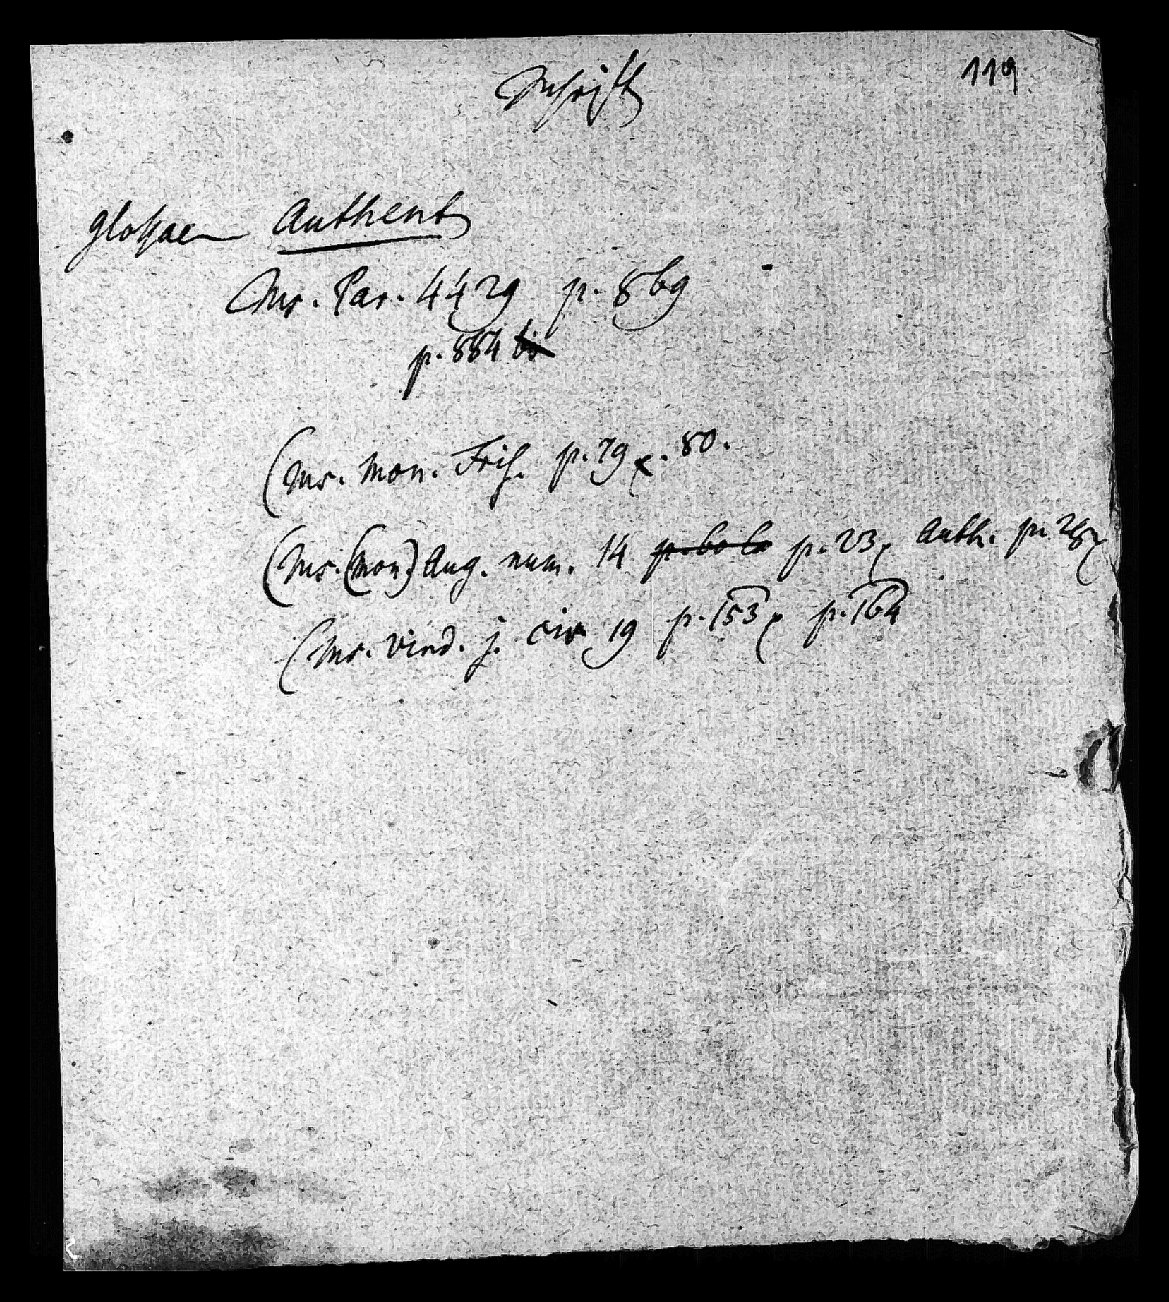 119
Schrift
glossae Authent
Ms. Par. 4429 p. 869
p. 884
(Ms. Mon. Fris. p. 79 . 80.
(Ms. (Mon.) Aug. num. 14 p. 23 Auth. p. 28
(Ms. Vind. j. civ 19 p. 153 p. 164